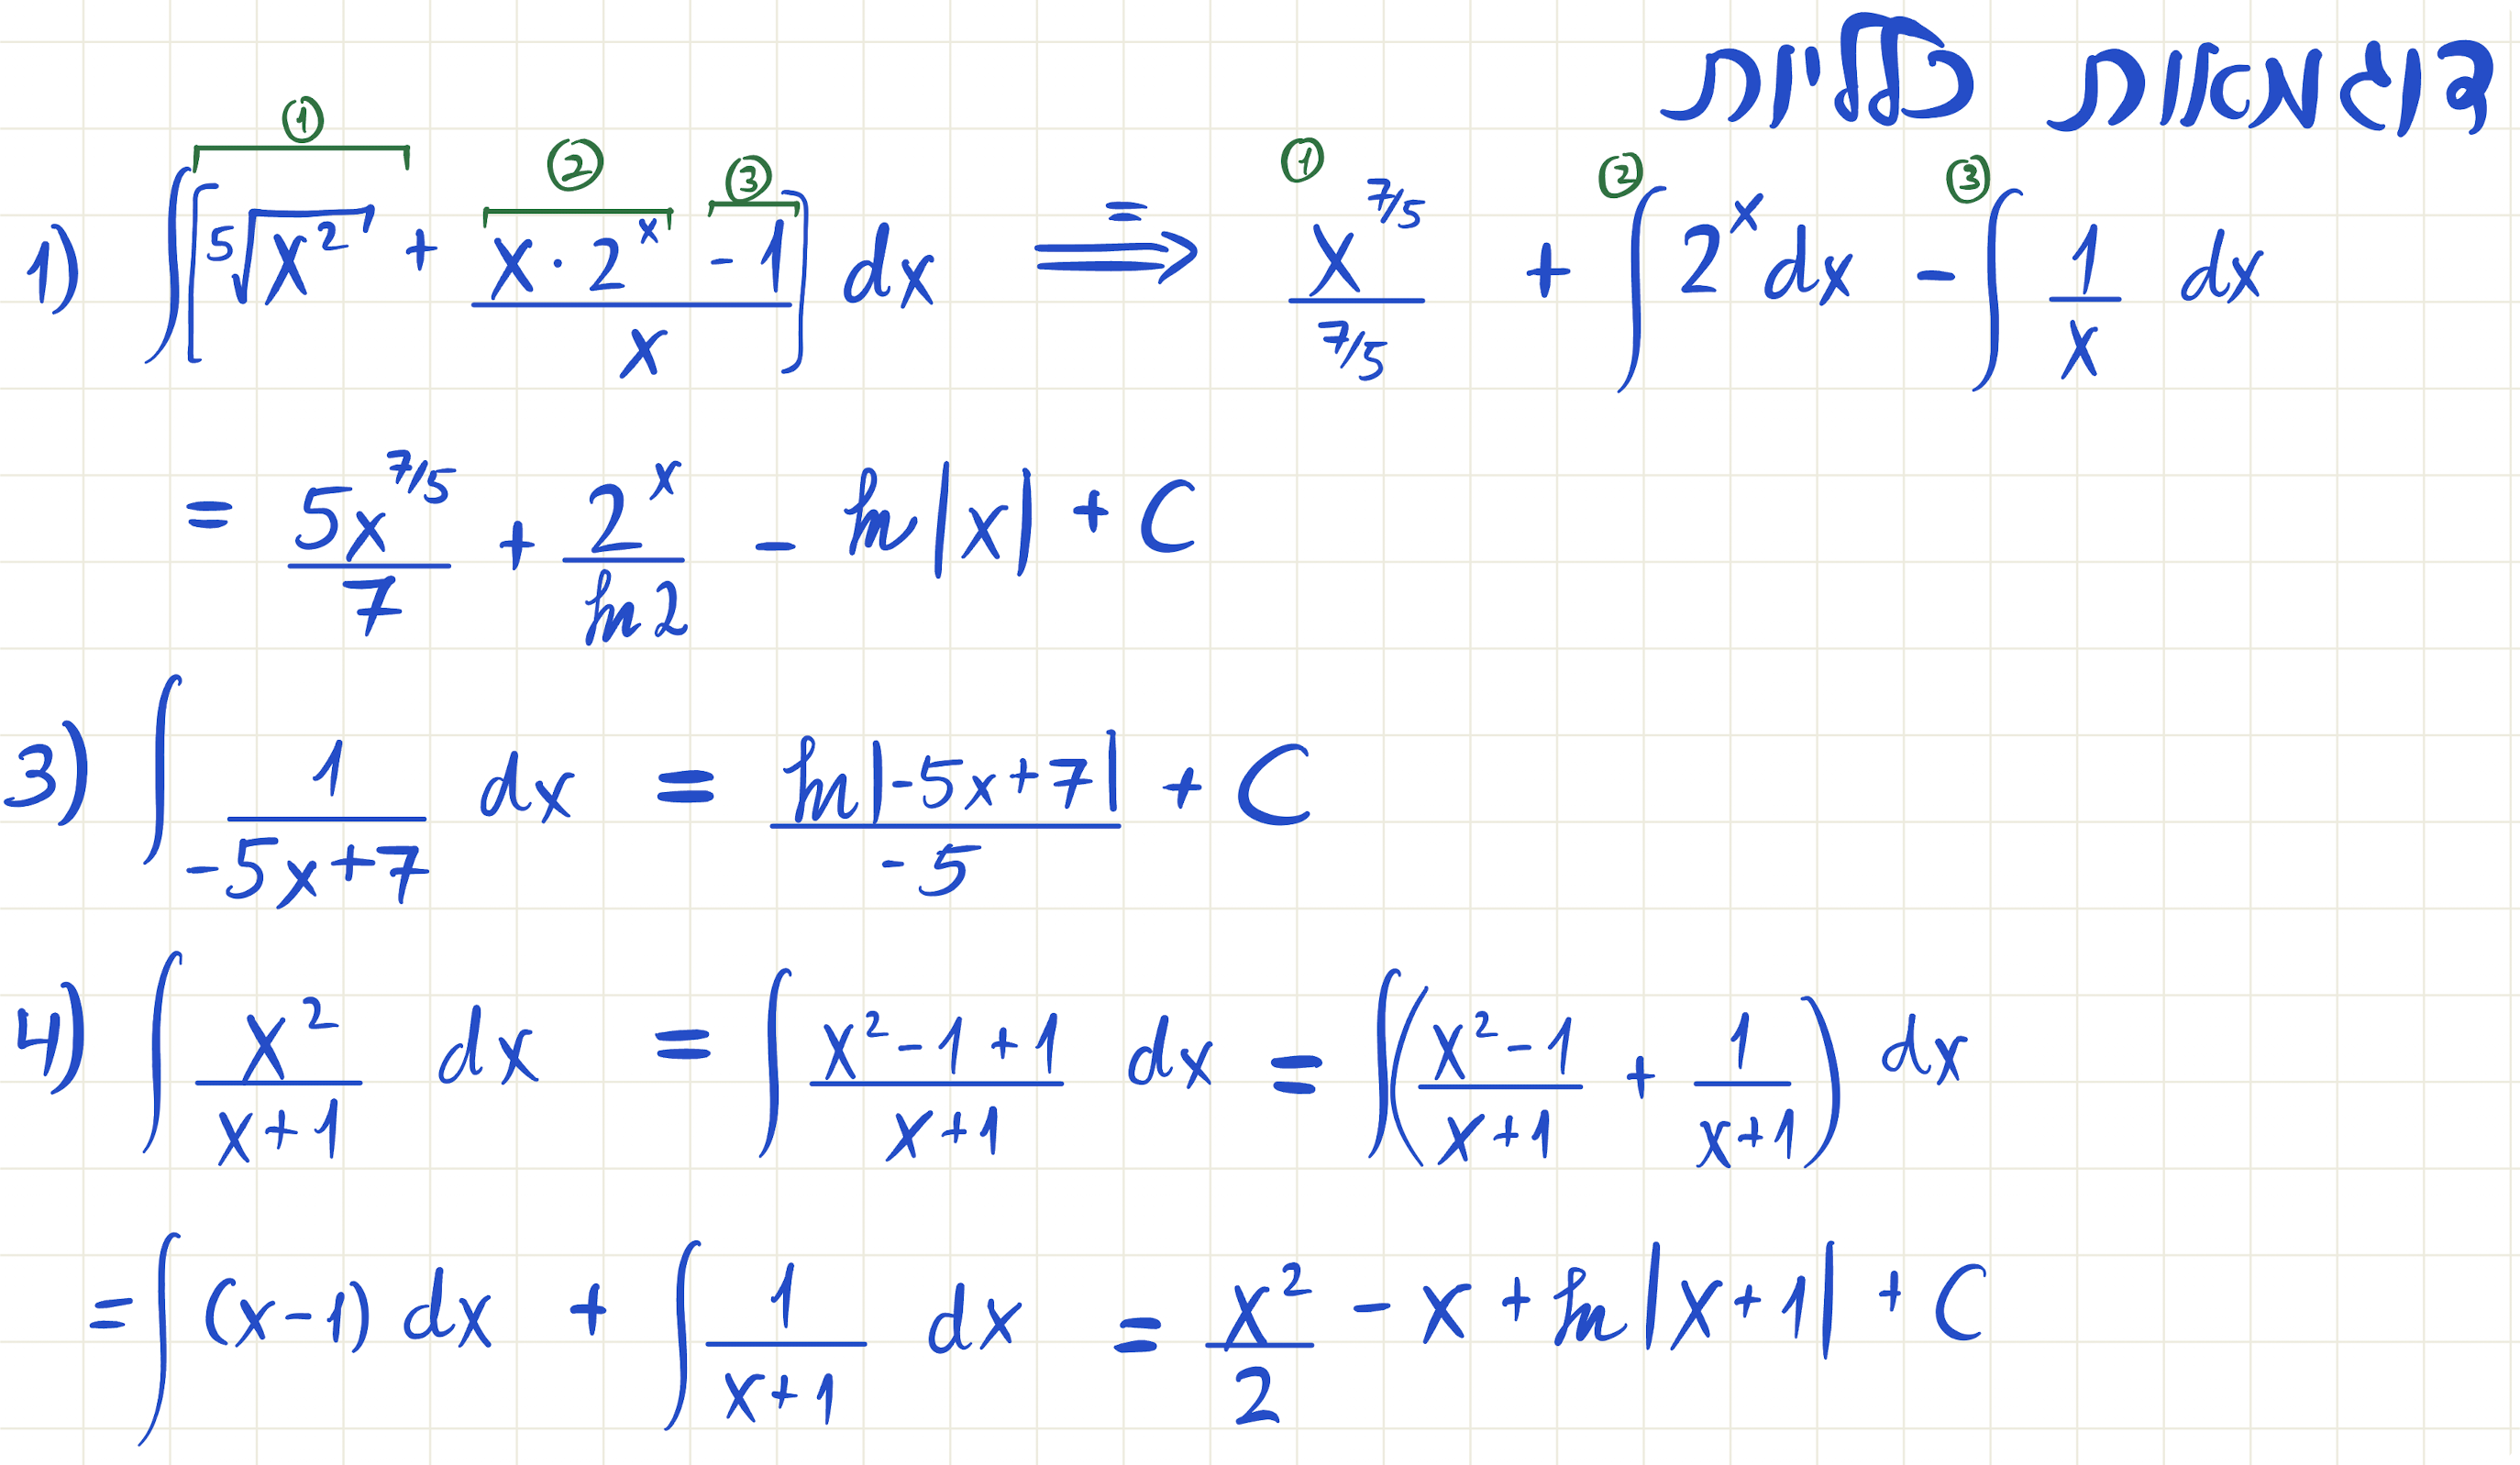 דוגמאות כלליות
1) ∫[⁵√x² + (x · 2ˣ - 1)/x] dx ⟹ = x^(7/5)/(7/5) + ∫ 2ˣ dx - ∫ 1/x dx
① ② ③ ① ② ③
= 5x^(7/5)/7 + 2ˣ/ln 2 - ln|x| + C
3) ∫ 1/(-5x+7) dx = ln|-5x+7|/-5 + C
4) ∫ x²/(x+1) dx = ∫ (x²-1+1)/(x+1) dx = ∫((x²-1)/(x+1) + 1/(x+1)) dx
= ∫ (x-1) dx + ∫ 1/(x+1) dx = x²/2 - x + ln|x+1| + C